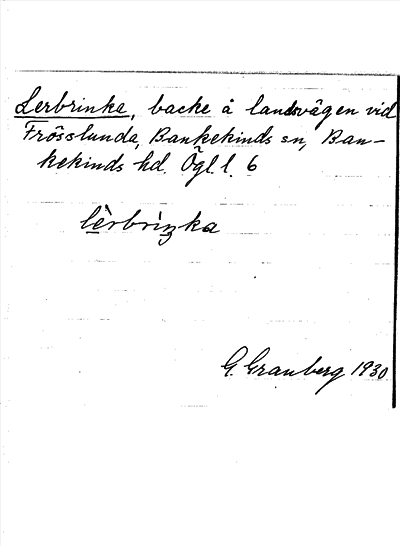 Lerbrinka, backe å landsvägen vid
Frösslunda, Bankekinds sn, Ban-
kekinds hd. Ögl. l. 6
G. Granberg 1930